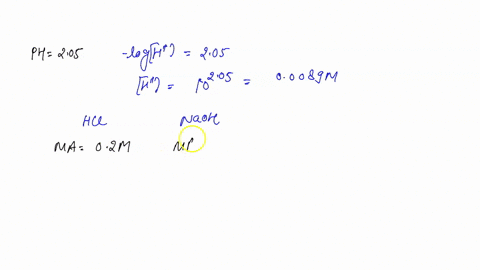 PH = 2.05 -log[H⁺) = 2.05
[H⁺) = 10^2.05 = 0.0089M
HCl NaOH
MA = 0.2M M